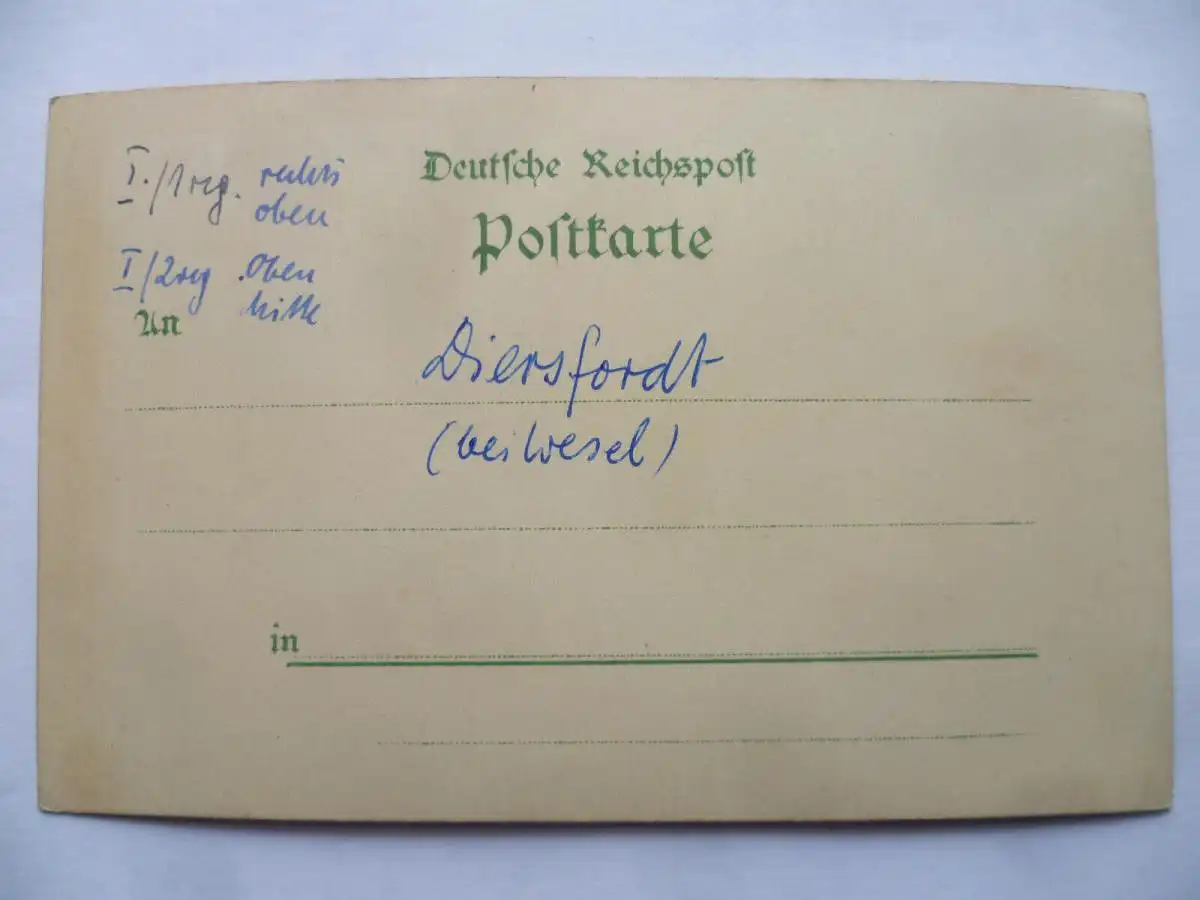 Deutsche Reichspost
Postkarte
I./1 reg. rechts
oben
I/2 reg. Oben
Mitte
An
Diersfordt
(bei Wesel)
in